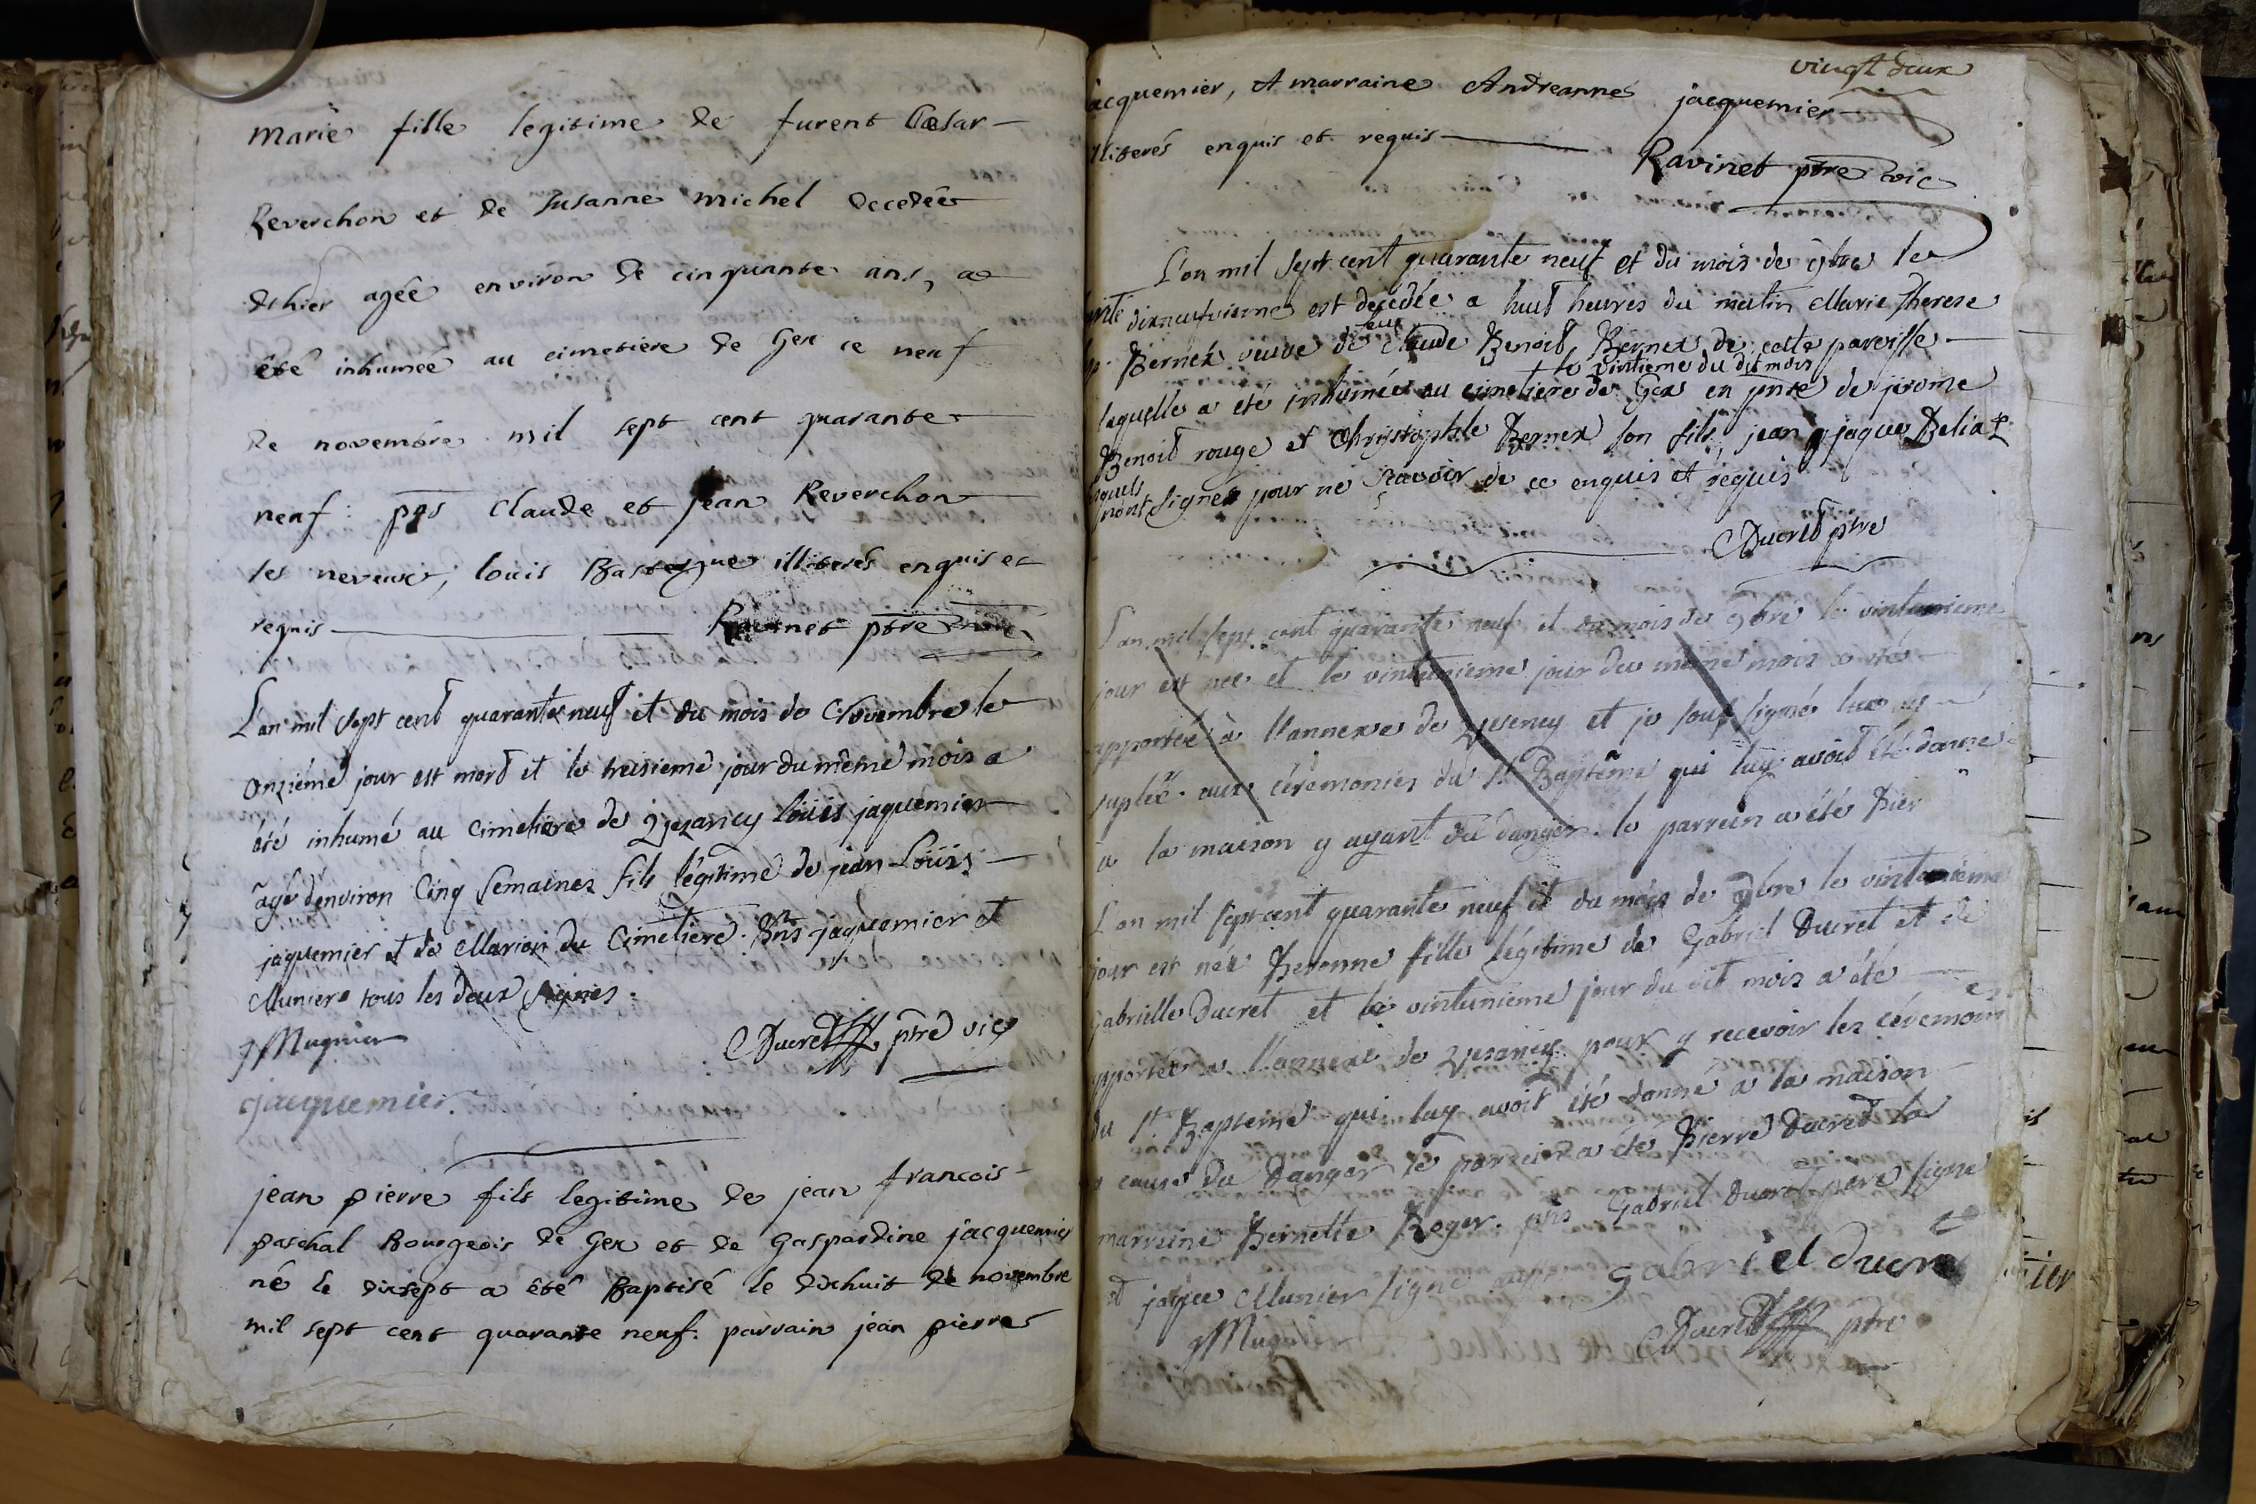 Marie fille legitime de furent Cæsar
Reverchon et de Susanne Michel decedée
d'hier agée environ de cinquante ans, a
été inhumée au cimetiere de Gex ce neuf
de novembre mil sept cent quarante
neuf: pns Claude et jean Reverchon
ses neveux, louis illiterés enquis et
requis Ravinet ptre
L'an mil sept cent quarante neuf et du mois de Novembre le
onziéme jour est mort et le treisieme jour du même mois a
été inhumé au cimetiere de louis jaquemier
âgé d'environ Cinq Semaines fils légitime de jean-Louis
jaquemier et de Marion du Cimetiere. Pns jaquemier et
Munier tous les deux signés.
Mugnier
Ducret ptre vic
jacquemier
jean pierre fils legitime de jean francois
paschal Bourgeois de Gex et de Gaspardine jacquemier
né le dixsept a êté Baptisé le dixhuit de novembre
mil sept cent quarante neuf. parrain jean pierre
vingt deux
jacquemier, et marraine Andreanne jacquemier
illiterés enquis et requis Ravinet ptre vic
L'an mil sept cent quarante neuf et du mois de 9bre le
dixneufvieme est decedée a huit heures du matin Marie Therese
Bernex veuve de feu Claude Benoit Bernex de cette paroisse
le vintieme du dit mois
laquelle a été inhumée au cimetiere de Gex en pnce de jerome
Benoit rouge et Christophle Bernex son fils, jean jaque Delia
lequels
n'ont signer pour ne scavoir de ce enquis et requis
Ducret ptre
L'an mil sept cent quarante neuf et du mois de 9bre le vintunieme
jour est née et le vintunieme jour du même mois a été
apportée à l'annexe de et je soussigné luy
suplée aux cérémonies du St. Baptême qui luy avoit été donné
a la maison y ayant du danger. le parrein a été Pier
L'an mil sept cent quarante neuf et du mois de 9bre le vintunieme
jour est née Peronne fille légitime de Gabriel Ducret et de
Gabrielle Ducret et le vintunieme jour du dit mois a été
apportée a l'annexe de pour y recevoir les céremonies
du St. Bapteme qui luy avoit été donné a la maison
a cause du danger le parrein a été Pierre Ducret la
marreine Pernette Roger. pns Gabriel Ducret pere signé
et jaque Munier signé aussi Gabriel ducret
Mugnier
Ducret ptre